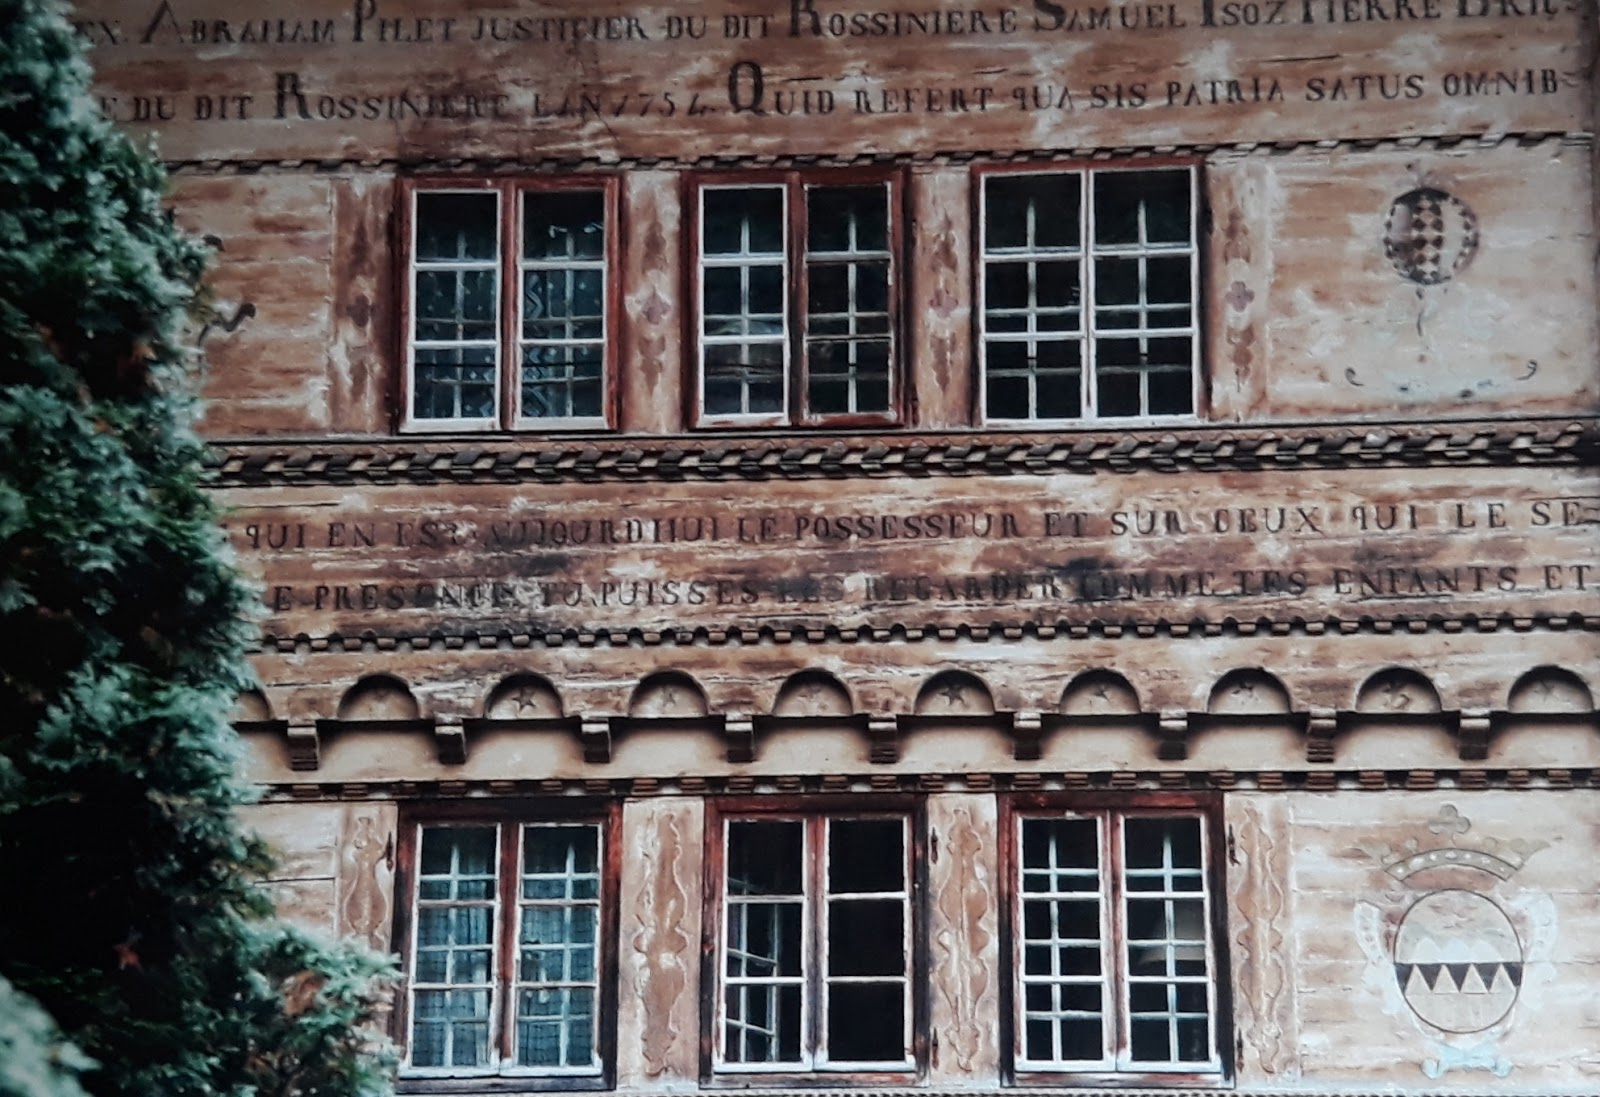 EX. ABRAHAM PILET JUSTICIER DU DIT ROSSINIERE SAMUEL ISOZ PIERRE
E DU DIT ROSSINIERE LAN 1754. QUID REFERT QUA SIS PATRIA SATUS OMNIB=
QUI EN EST AUJOURDHUI LE POSSESSEUR ET SUR CEUX QUI LE SE=
E PRESENCE TU PUISSES LES REGARDER COMME TES ENFANTS ET